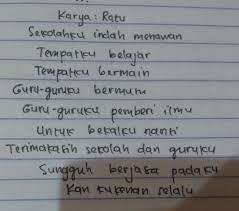 Karya : Ratu
Sekolahku indah menawan
Tempatku belajar
Tempatku bermain
Guru-guruku bermutu
Guru-guruku pemberi ilmu
Untuk bekalku nanti
Terimakasih sekolah dan guruku
Sungguh berjasa padaku
Kan kukenan selalu